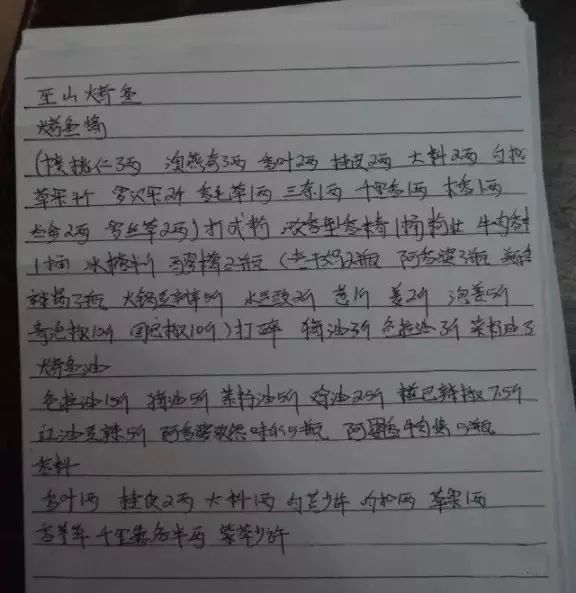 巫山烤鱼
烤鱼酱
(核桃仁3两 澳燕麦3两 香叶2两 桂皮2两 大料2两 白扣
草果4个 罗汉果2个 香毛草1两 三奈1两 千里香1两 木香1两
2两 2两)打成粉 1桶 牛肉香
1桶 冰糖1斤 2瓶 (老干妈2瓶 阿香婆3瓶
3瓶 火锅豆瓣5斤 2斤 1斤 姜2斤 泡姜5斤
青泡椒10斤 10斤)打碎 猪油3斤 色拉油3斤 菜籽油3
烤鱼油
色拉油15斤 猪油5斤 菜籽油5斤 鸡油2.5斤 糍巴辣椒7.5斤
红油豆瓣5斤 阿香婆 5瓶 阿香婆牛肉酱5瓶
香料
香叶1两 桂皮2两 大料1两 白芷少许 白扣1两 草果1两
香茅草 千里香各半两 紫草少许